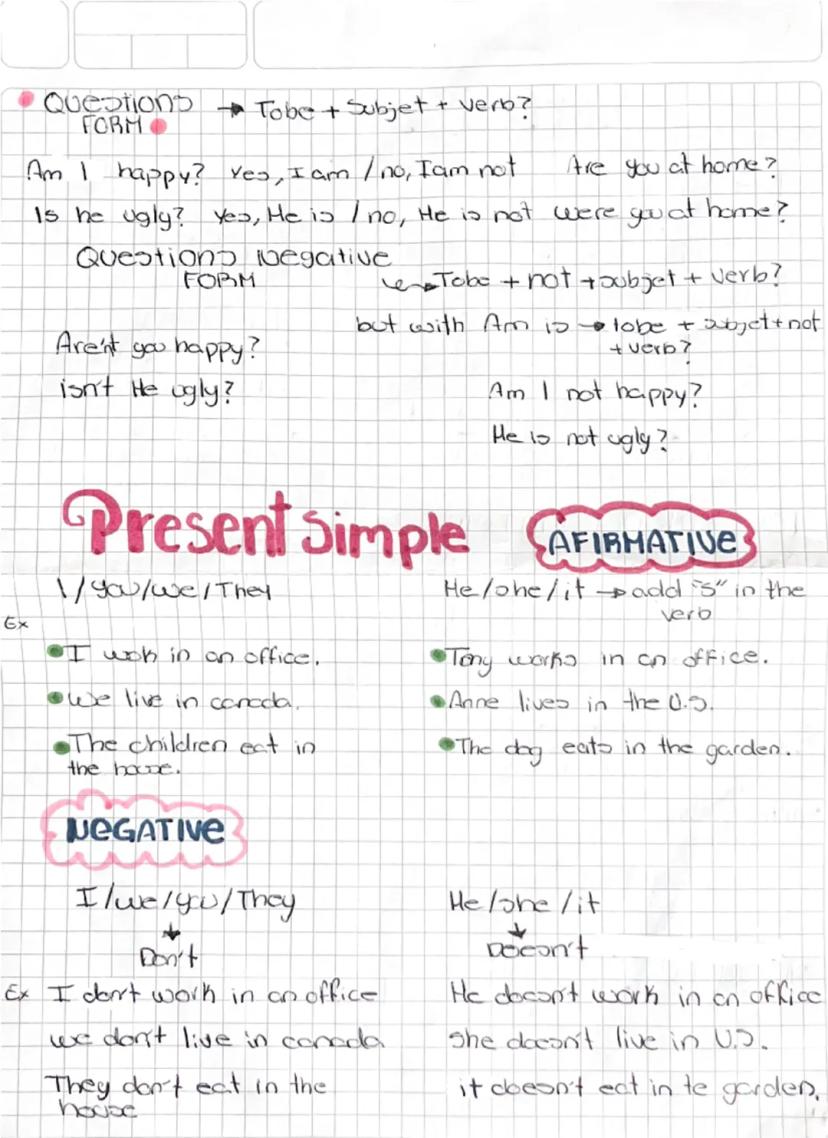 Questions → Tobe + Subjet + verb?
FORM
Am I happy? yes, I am / no, I am not Are you at home?
Is he ugly? yes, He is / no, He is not were you at home?
Questions Negative
FORM → Tobe + not + subjet + verb?
but with Am is → tobe + subjet + not
+ verb?
Aren't you happy?
isn't He ugly?
Am I not happy?
He is not ugly?
Present simple AFIRMATIVE
I/you/we/They He/she/it → add "s" in the
verb
Ex
I work in an office. Tony works in an office.
We live in canada. Anne lives in the U.S.
The children eat in The dog eats in the garden.
the house.
NEGATIVE
I/we/you/They He/she/it
↓ ↓
Don't Doesn't
Ex I don't work in an office He doesn't work in an office
we don't live in canada She doesn't live in U.S.
They don't eat in the it doesn't eat in te garden.
house